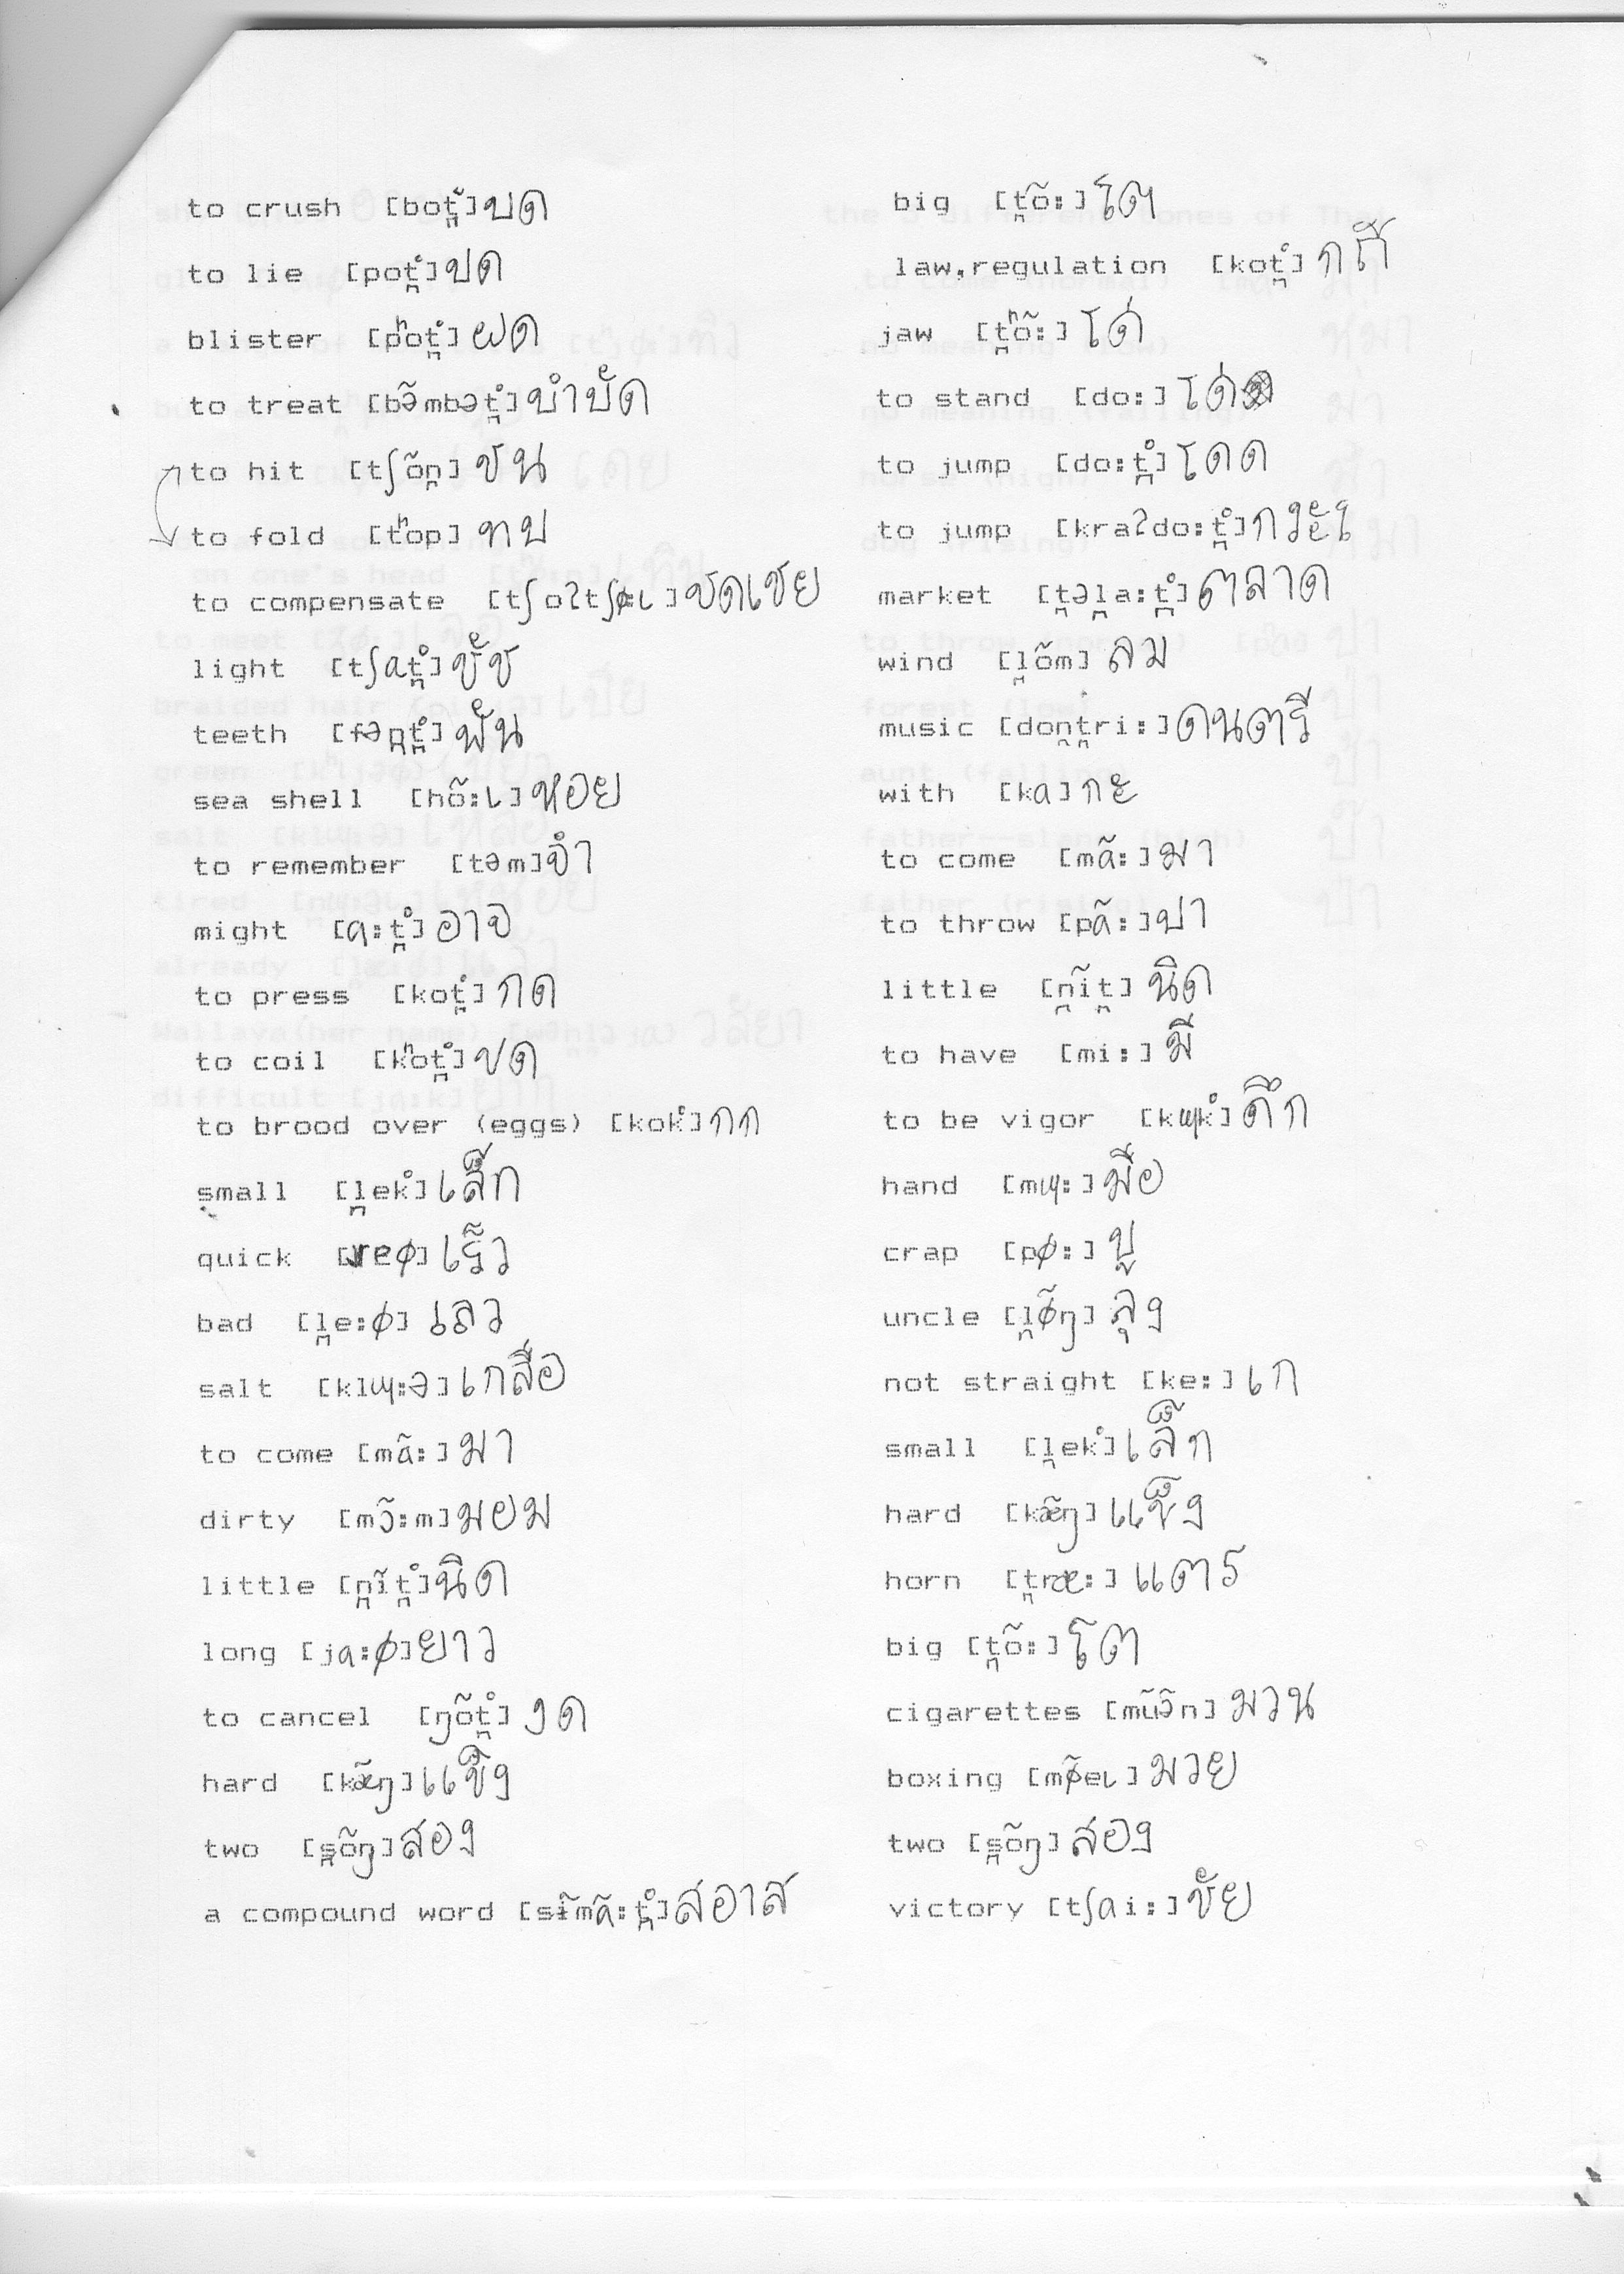 to crush [bot̪̚] บด
to lie [pot̪̚] ปด
blister [pʰot̪̚] ผด
to treat [bə̃mbət̪̚] บำบัด
to hit [tʃõn̪] ชน
to fold [tʰop] ทบ
to compensate [tʃoʔtʃø:ɩ] ชดเชย
light [tʃat̪̚] ชัช
teeth [fən̪t̪̚] ฟัน
sea shell [hõ:ɩ] หอย
to remember [təm] จำ
might [a:t̪̚] อาจ
to press [kot̪̚] กด
to coil [kʰot̪̚] ขด
to brood over (eggs) [kok̚] กก
small [l̪ek̚] เล็ก
quick [reø] เร็ว
bad [l̪e:ø] เลว
salt [klɰ:ə] เกลือ
to come [mã:] มา
dirty [mɔ̃:m] มอม
little [n̪ĩt̪̚] นิด
long [ja:ø] ยาว
to cancel [ŋõt̪̚] งด
hard [kæ̃ŋ] แข็ง
two [s̪õŋ] สอง
a compound word [sɨ̃mã:t̪̚] สอาส
big [t̪õ:] โต
law,regulation [kot̪̚]
jaw [t̪ʰõ:] โต่
to stand [do:] โด่
to jump [do:t̪̚] โดด
to jump [kraʔdo:t̪̚]
market [t̪əl̪a:t̪̚] ตลาด
wind [l̪õm] ลม
music [don̪t̪ri:] ดนตรี
with [ka] กะ
to come [mã:] มา
to throw [pã:] ปา
little [n̪ĩt̪] นิด
to have [mi:] มี
to be vigor [kɰk̚] คึก
hand [mɰ:] มือ
crap [pø:] ปู
uncle [l̪ø̃ŋ] ลุง
not straight [ke:] เก
small [l̪ek̚] เล็ก
hard [kæ̃ŋ] แข็ง
horn [t̪ræ:] แตร
big [t̪õ:] โต
cigarettes [mũɔ̃n] มวน
boxing [mø̃eɩ] มวย
two [s̪õŋ] สอง
victory [tʃai:] ชัย